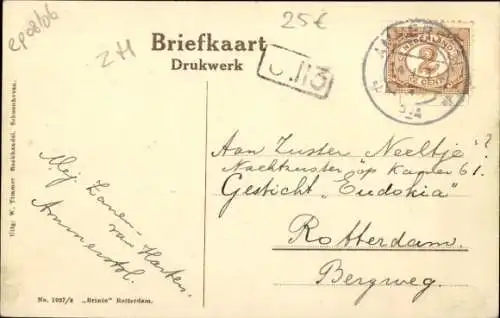 ep08/06
ZH
25€
Briefkaart
Drukwerk
NEDERLAND
2
CENT
Aan Zuster Neeltje ?
Nachtzuster op Kamer 61.
Gesticht "Eudokia"
Rotterdam.
Bergweg.
Mej.
van
Ammerstol.
Uitg. W. Timmer Boekhandel, Schoonhoven.
No. 1037/8 „Brinio" Rotterdam.